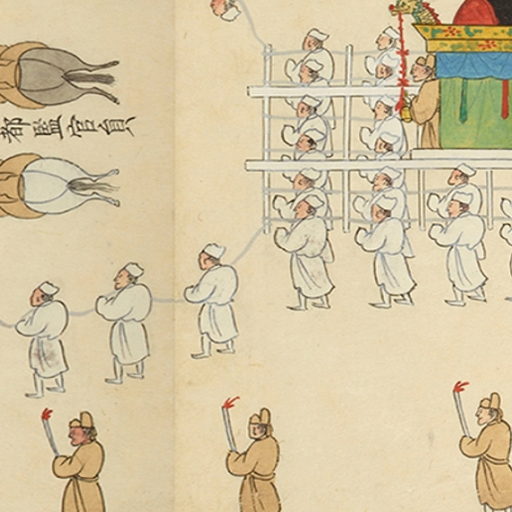 都監官員